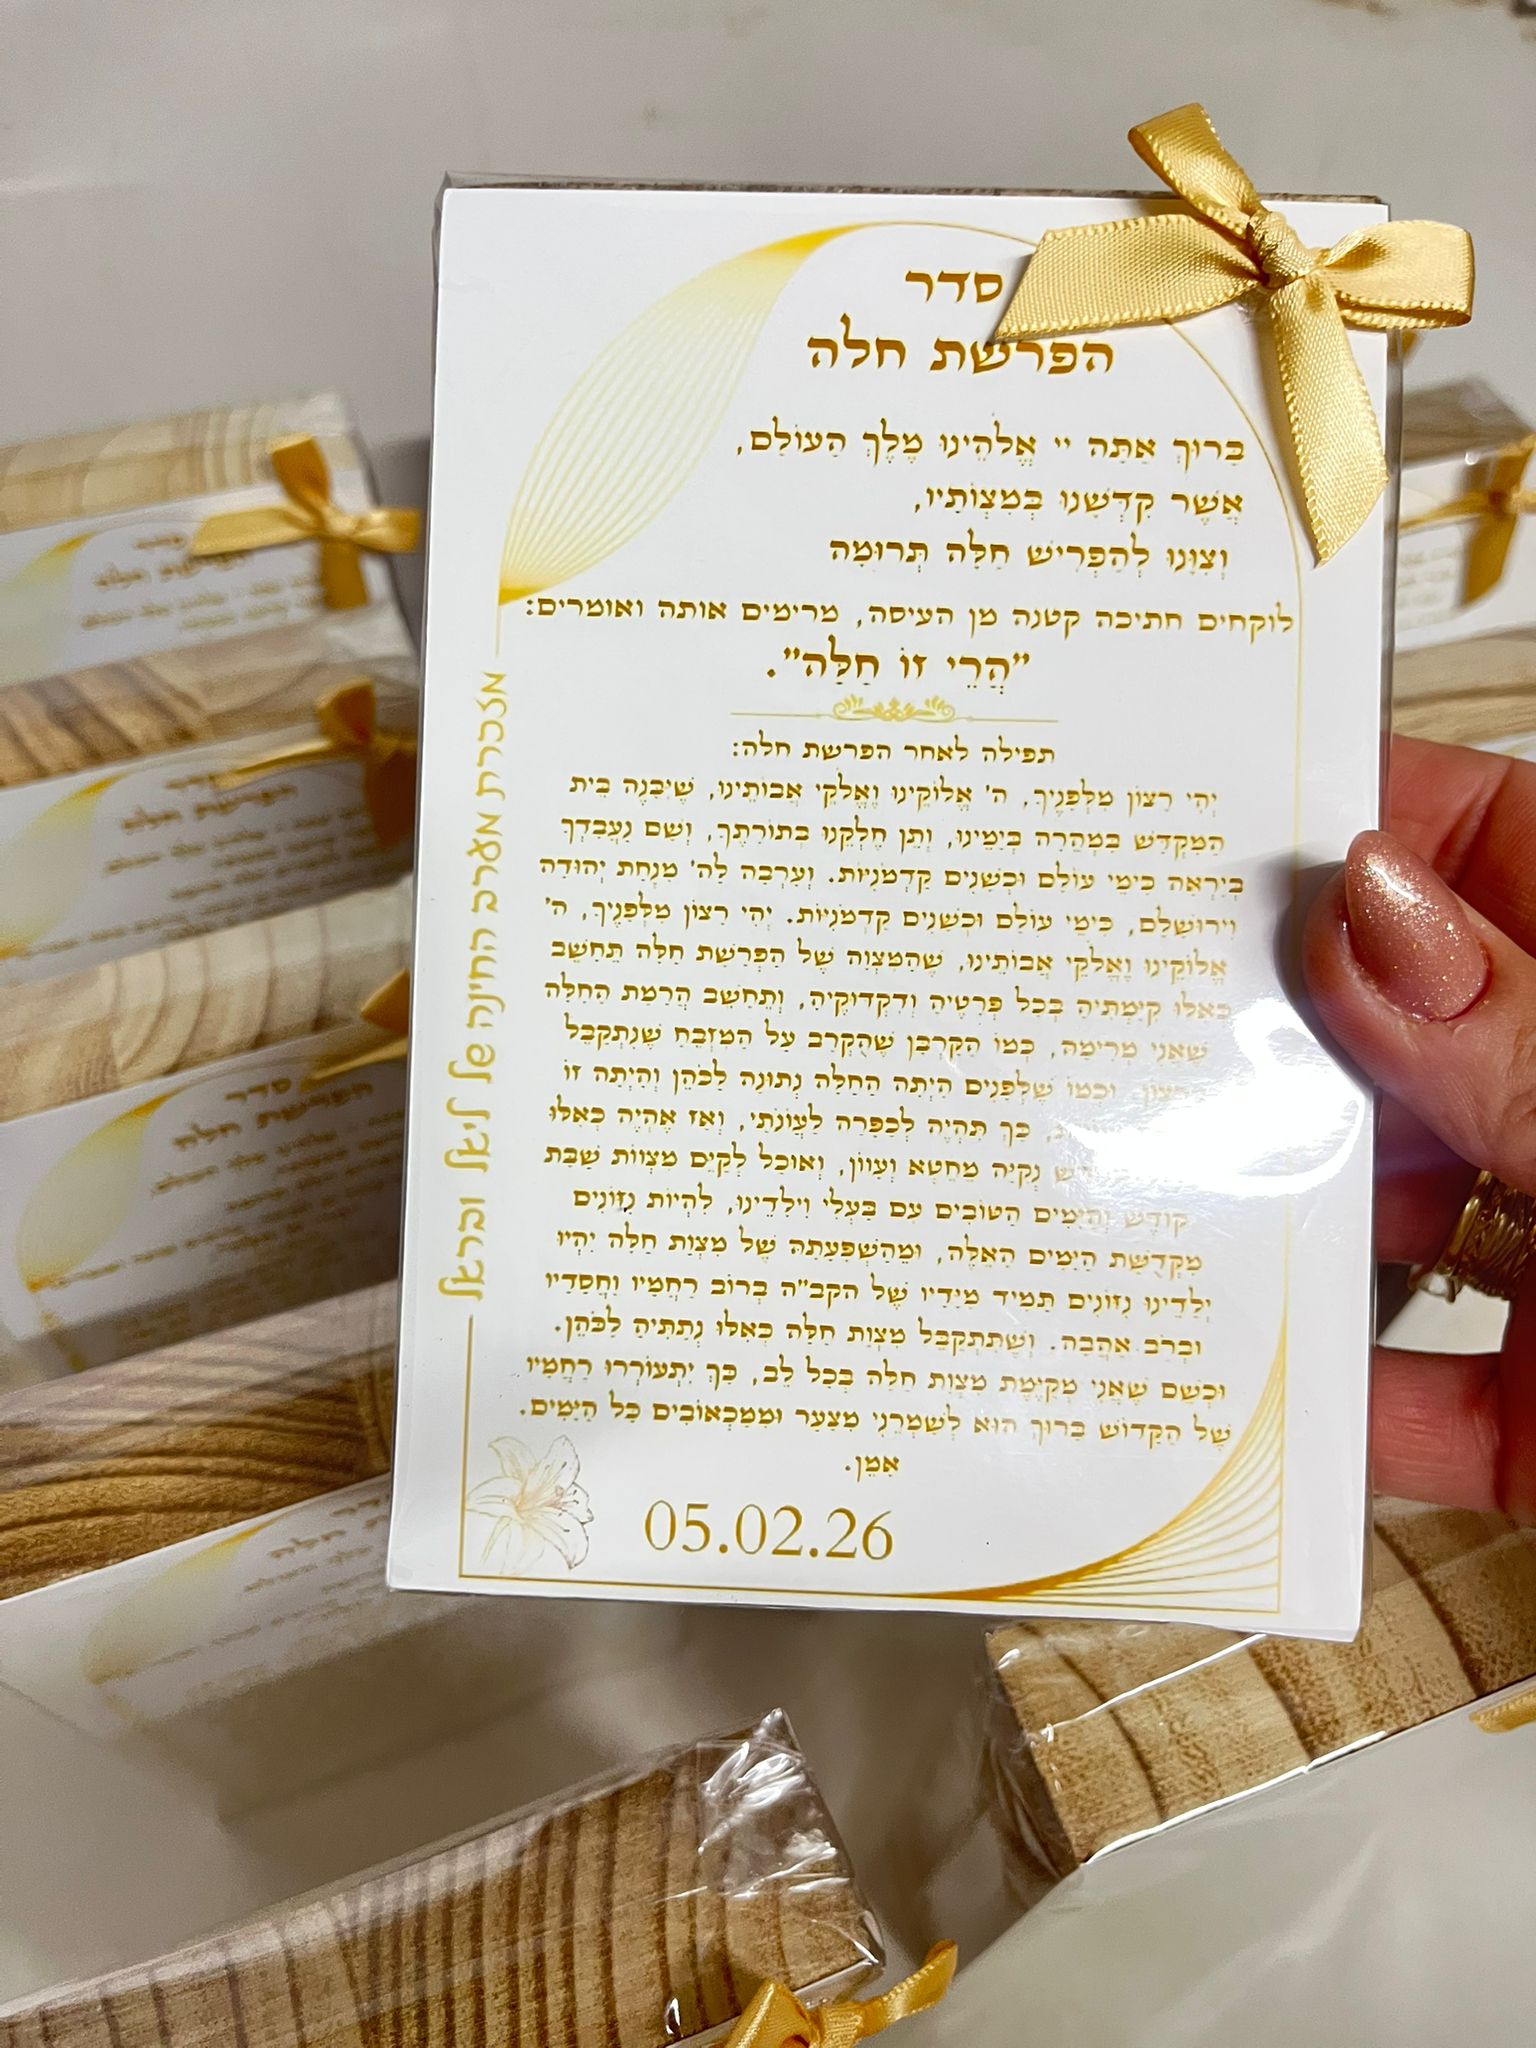 סדר
הפרשת חלה
בָּרוּךְ אַתָּה יי אֱלֹהֵינוּ מֶלֶךְ הָעוֹלָם,
אֲשֶׁר קִדְּשָׁנוּ בְּמִצְוֹתָיו,
וְצִוָּנוּ לְהַפְרִישׁ חַלָּה תְּרוּמָה
לוקחים חתיכה קטנה מן העיסה, מרימים אותה ואומרים:
"הֲרֵי זוֹ חַלָּה".
תפילה לאחר הפרשת חלה:
יְהִי רָצוֹן מִלְּפָנֶיךָ, ה' אֱלוֹקֵינוּ וֶאֱלֹקֵי אֲבוֹתֵינוּ, שֶׁיִּבָּנֶה בֵּית
הַמִּקְדָּשׁ בִּמְהֵרָה בְיָמֵינוּ, וְתֵן חֶלְקֵנוּ בְּתוֹרָתֶךָ, וְשָׁם נַעֲבָדְךָ
בְּיִרְאָה כִּימֵי עוֹלָם וּכְשָׁנִים קַדְמֹנִיּוֹת. וְעָרְבָה לַה' מִנְחַת יְהוּדָה
וִירוּשָׁלִָם, כִּימֵי עוֹלָם וּכְשָׁנִים קַדְמֹנִיּוֹת. יְהִי רָצוֹן מִלְּפָנֶיךָ, ה'
אֱלוֹקֵינוּ וֶאֱלֹקֵי אֲבוֹתֵינוּ, שֶׁהַמִּצְוָה שֶׁל הַפְרָשַׁת חַלָּה תֵּחָשֵׁב
כְּאִלּוּ קִיַּמְתִּיהָ בְּכָל פְּרָטֶיהָ וְדִקְדּוּקֶיהָ, וְתֵחָשֵׁב הֲרָמַת הַחַלָּה
שֶׁאֲנִי מְרִימָה, כְּמוֹ הַקָּרְבָּן שֶׁהֻקְרַב עַל הַמִּזְבֵּחַ שֶׁנִּתְקַבֵּל
וּכְמוֹ שֶׁלְּפָנִים הָיְתָה הַחַלָּה נְתוּנָה לַכֹּהֵן וְהָיְתָה זוֹ
כָּךְ תִּהְיֶה לְכַפָּרָה לַעֲוֹנֹתַי, וְאָז אֶהְיֶה כְּאִלּוּ
נְקִיָּה מֵחֵטְא וְעָווֹן, וְאוּכַל לְקַיֵּם מִצְווֹת שַׁבָּת
קוֹדֶשׁ וְהַיָּמִים הַטּוֹבִים עִם בַּעְלִי וִילָדֵינוּ, לִהְיוֹת נִזּוֹנִים
מִקְּדֻשַּׁת הַיָּמִים הָאֵלֶּה, וּמֵהַשְׁפָּעָתָהּ שֶׁל מִצְוַת חַלָּה יִהְיוּ
יְלָדֵינוּ נִזּוֹנִים תָּמִיד מִיָּדָיו שֶׁל הקב"ה בְּרוֹב רַחֲמָיו וַחֲסָדָיו
וּבְרֹב אַהֲבָה. וְשֶׁתִּתְקַבֵּל מִצְוַת חַלָּה כְּאִלּוּ נְתַתִּיהָ לַכֹּהֵן.
וּכְשֵׁם שֶׁאֲנִי מְקַיֶּמֶת מִצְוַת חַלָּה בְּכָל לֵב, כָּךְ יִתְעוֹרְרוּ רַחֲמָיו
שֶׁל הַקָּדוֹשׁ בָּרוּךְ הוּא לְשָׁמְרֵנִי מִצַּעַר וּמִמַּכְאוֹבִים כָּל הַיָּמִים.
אָמֵן.
05.02.26
מזכרת מערב החינה של ליאל ובראל